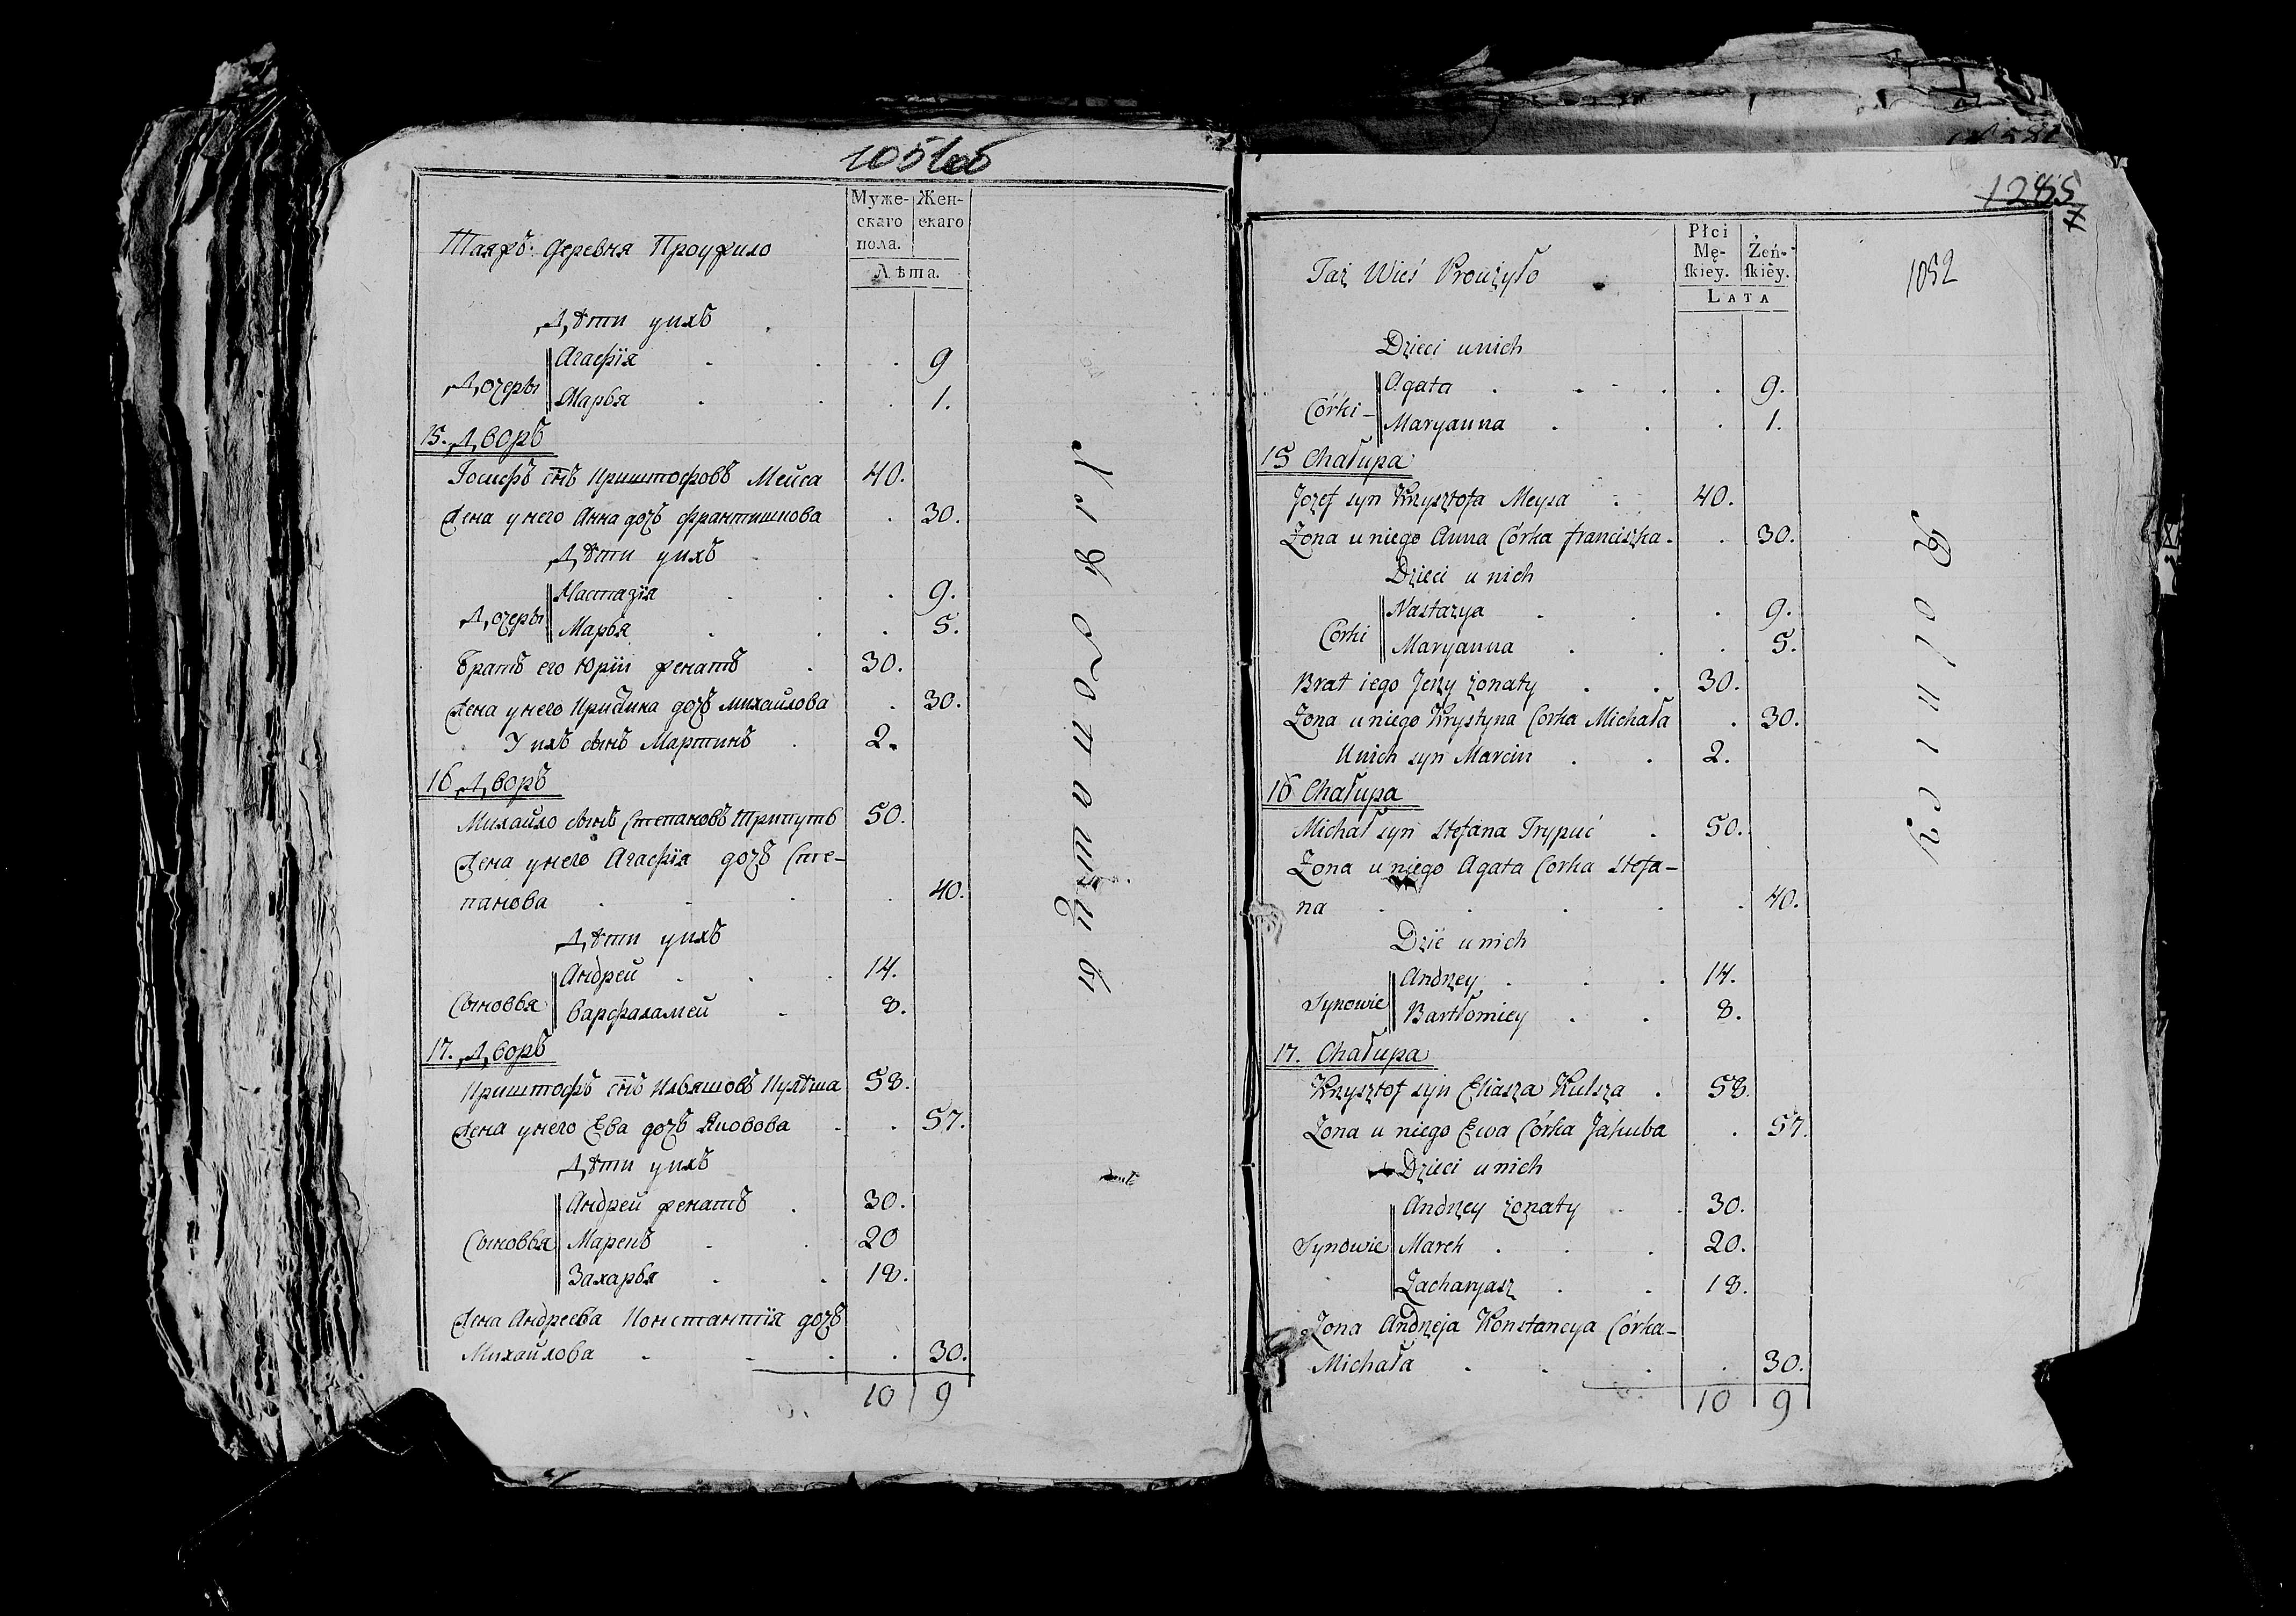 1051об
Таяжъ деревня Проужило
Муже-
скаго
пола.
Жен-
скаго
Лѣта.
Дѣти уихъ
Дочеры
Агафїя 9
Марья 1.
15. Дворъ
Іосифъ сн҃ъ Криштофовъ Мейса 40.
Жена унего Анна дочь франтишкова 30.
Дѣти уихъ
Дочеры
Настазїя 9.
Марья 5.
Братъ его Юрїи женатъ 30.
Жена унего Кристина дочь михайлова 30.
У ихъ сынъ Мартинъ 2.
16 Дворъ
Михайло сынъ Степановъ Трипуть 50.
Жена унего Агафїя дочь Сте-
панова 40.
Дѣти уихъ
Сыновья
Андрей 14.
Варфаламей 8.
17. Дворъ
Криштофъ сн҃ъ Ильяшовъ Кулѣша 58.
Жена унего Ева дочь Яковова 57.
Дѣти уихъ
Сыновья
Андрей женатъ 30.
Марекъ 20
Захарья 18.
Жена Андреева Константїя дочь
Михайлова 30.
10 9
1285
7
1052
Taż Wieś Proużyło
Płci
Mę-
ſkiey.
Żeń-
ſkiéy.
LATA
Dzieci unich
Córki
Agata 9.
Maryanna 1.
15 Chałupa
Jozef syn Krzysztofa Meysa 40.
Żona u niego Anna Córka franciszka 30.
Dzieci u nich
Córki
Nastazya 9.
Maryanna 5.
Brat iego Jerzy żonaty 30.
Żona u niego Krystyna Corka Michała 30.
Unich syn Marcin 2.
16 Chałupa
Michał syn Stefana Trypuć 50.
Żona u niego Agata Corka Stefa-
na 40.
Dzie unich
Synowie
Andrzey 14.
Bartłomiey 8.
17. Chałupa
Krzysztof syn Eliasza Kulsza 58.
Żona u niego Ewa Córka Jakuba 57.
Dzieci unich
Synowie
Andrzey żonaty 30.
Marek 20.
Zacharyasz 18.
Żona Andrzeja Konstancya Córka
Michała 30.
10 9